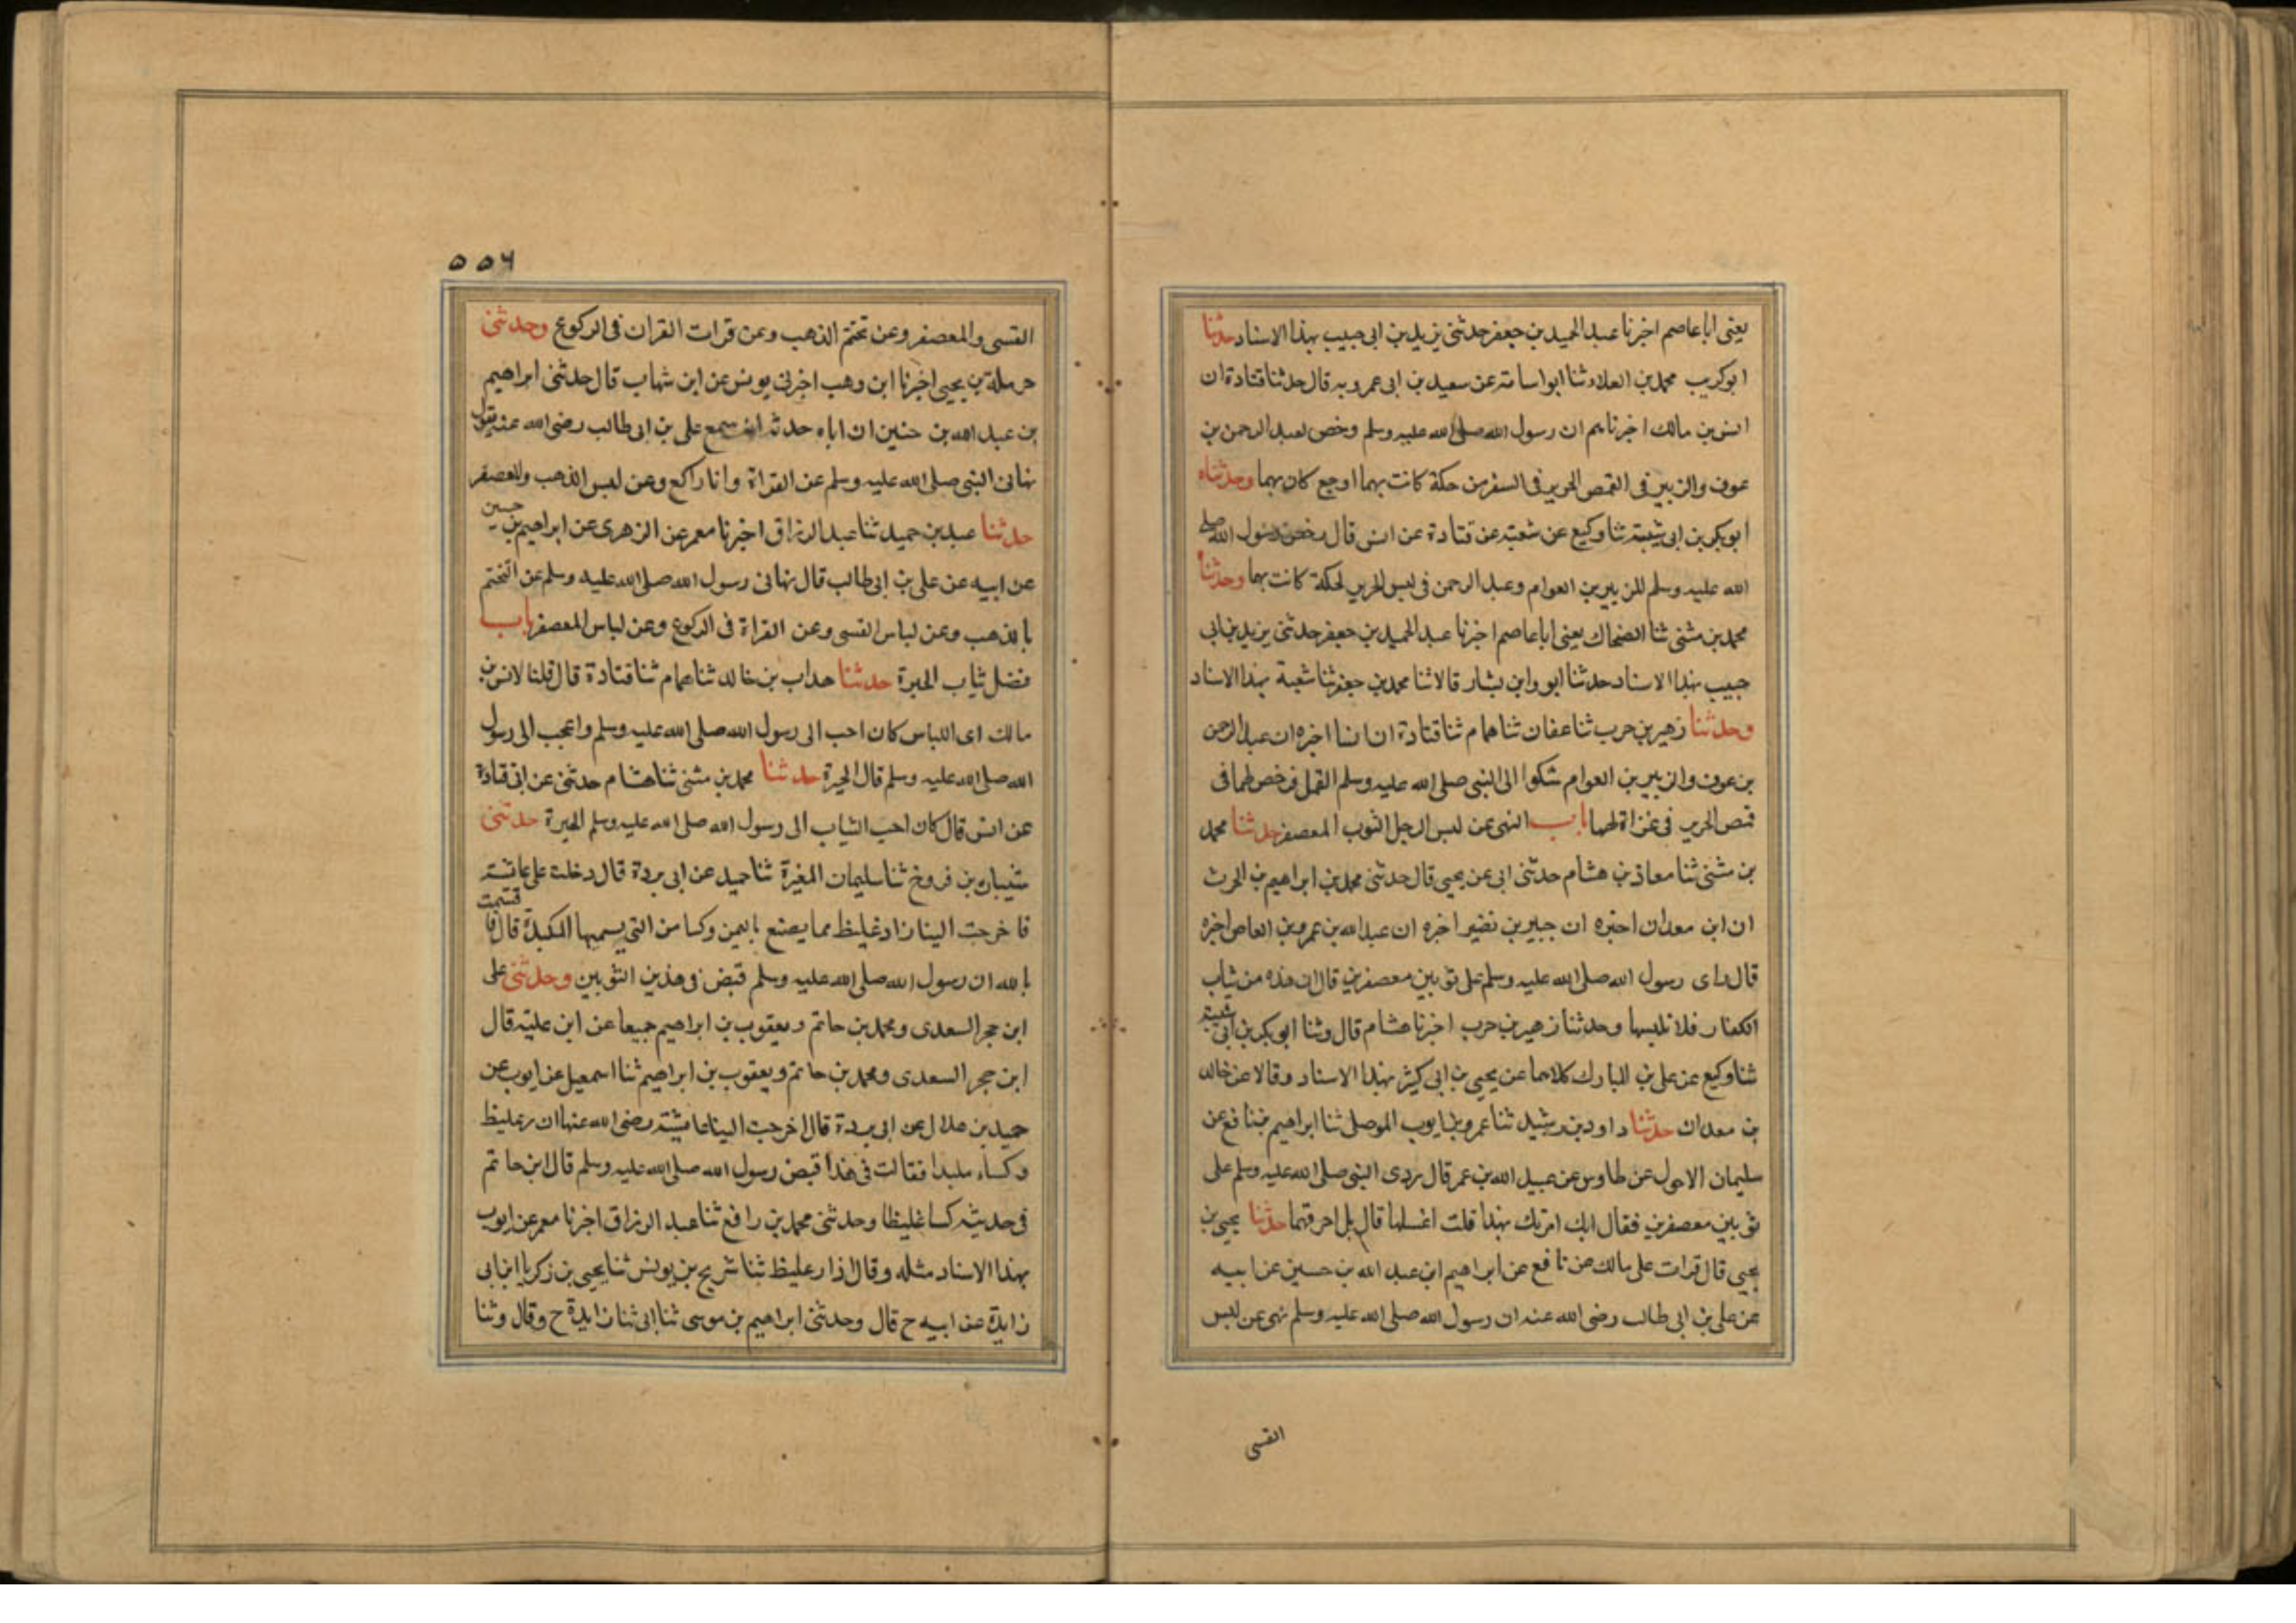 يعنى ابا عاصم اخبرنا عبد الحميد بن جعفر حدثنى يزيد بن ابى حبيب بهذا الاسناد حدثنا
ابو كريب محمد بن العلاء ثنا ابو اسامة عن سعيد بن ابى عروبه قال حدثنا قتادة ان
انس بن مالك اخبرنا هم ان رسول الله صلى الله عليه وسلم رخص لعبد الرحمن بن
عوف والزبير فى القمص الحرير فى السفر من حكة كانت بهما او وجع كان بهما وحدثناه
ابو بكر بن ابى شيبة ثنا وكيع عن شعبة عن قتادة عن انس قال رخص رسول الله صلى
الله عليه وسلم للزبير بن العوام وعبد الرحمن فى لبس الحرير لحكة كانت بهما وحدثنا
محمد بن مثنى ثنا الضحاك يعنى ابا عاصم اخبرنا عبد الحميد بن جعفر حدثنى يزيد بن ابى
حبيب بهذا الاسناد حدثنا ابو وابن بشار قالا ثنا محمد بن جعفر ثنا شعبة بهذا الاسناد
وحدثنا زهير بن حرب ثنا عفان ثنا همام ثنا قتادة ان انسا اخبره ان عبد الرحمن
بن عوف والزبير بن العوام شكوا الى النبى صلى الله عليه وسلم القمل فرخص لهما فى
قمص الحرير فى غزاة لهما باب النهى عن لبس الرجل الثوب المعصفر حدثنا محمد
بن مثنى ثنا معاذ بن هشام حدثنى ابى عن يحيى قال حدثنى محمد بن ابراهيم بن الحرث
ان ابن معدان اخبره ان جبير بن نضير اخبره ان عبد الله بن عمرو بن العاص اخبره
قال راى رسول الله صلى الله عليه وسلم على ثوبين معصفرين قال ان هذه من ثياب
الكفار فلا تلبسها وحدثنا زهير بن حرب اخبرنا هشام قال وثنا ابو بكر بن ابى شيبة
ثنا وكيع عن على بن المبارك كلاهما عن يحيى بن ابى كثير بهذا الاسناد وقالا عن خالد
بن معدان حدثنا داود بن رشيد ثنا عمرو بن ايوب الموصلى ثنا ابراهيم بن نافع عن
سليمان الاحول عن طاوس عن عبيد الله بن عمر قال ردى النبى صلى الله عليه وسلم على
ثوبين معصفرين فقال امك امرتك بهذا قلت اغسلهما قال بل احرقهما حدثنا يحيى بن
يحيى قال قرات على مالك عن نافع عن ابراهيم ابن عبد الله بن حسين عن ابيه
عن على بن ابى طالب رضى الله عنه ان رسول الله صلى الله عليه وسلم نهى عن لبس
القسى
٥٥٦
القسى والمعصفر وعن تختم الذهب وعن قرات القران فى الركوع وحدثنى
حرملة بن يحيى اخبرنا ابن وهب اخبرنى يونس عن ابن شهاب قال حدثنى ابراهيم
بن عبد الله بن حنين ان اباه حدثه انه سمع على بن ابى طالب رضى الله عنه يقول
نهانى النبى صلى الله عليه وسلم عن القراة وانا راكع وعن لبس الذهب والمعصفر
حدثنا عبد بن حميد ثنا عبد الرزاق اخبرنا معمر عن الزهرى عن ابراهيم بن حسين
عن ابيه عن على بن ابى طالب قال نهانى رسول الله صلى الله عليه وسلم عن التختم
بالذهب وعن لباس القسى وعن القراة فى الركوع وعن لباس المعصفر باب
فضل ثياب الحبرة حدثنا هداب بن خالد ثنا همام ثنا قتادة قال قلنا لانس بن
مالك اى اللباس كان احب الى رسول الله صلى الله عليه وسلم واعجب الى رسول
الله صلى الله عليه وسلم قال الحبرة حدثنا محمد بن مثنى ثنا هشام حدثنى عن ابى قتادة
عن انس قال كان احب الثياب الى رسول الله صلى الله عليه وسلم الحبرة حدثنى
شيبان بن فروخ ثنا سليمان المغيرة ثنا حميد عن ابى بردة قال دخلت على عائشة
فاخرجت الينا ازار غليظ مما يصنع باليمن وكسا من التى يسمها الملبدة قال فاقسمت
بالله ان رسول الله صلى الله عليه وسلم قبض فى هذين الثوبين وحدثنى على
ابن حجر السعدى ومحمد بن حاتم ويعقوب بن ابراهيم جميعا عن ابن علية قال
ابن حجر السعدى ومحمد بن حاتم ويعقوب بن ابراهيم ثنا اسمعيل عن ايوب عن
حميد بن هلال عن ابى بردة قال اخرجت الينا عائشة رضى الله عنها ازار غليظ
وكساء ملبدا فقالت فى هذا قبض رسول الله صلى الله عليه وسلم قال ابن حاتم
فى حديثه كسا غليظا وحدثنى محمد بن رافع ثنا عبد الرزاق اخبرنا معمر عن ايوب
بهذا الاسناد مثله وقال ازار غليظ ثنا شريح بن يونس ثنا يحيى بن زكريا ابن ابى
زايدة عن ابيه ح قال وحدثنى ابراهيم بن موسى ثنا ابى ثنا زايدة ح وقال وثنا